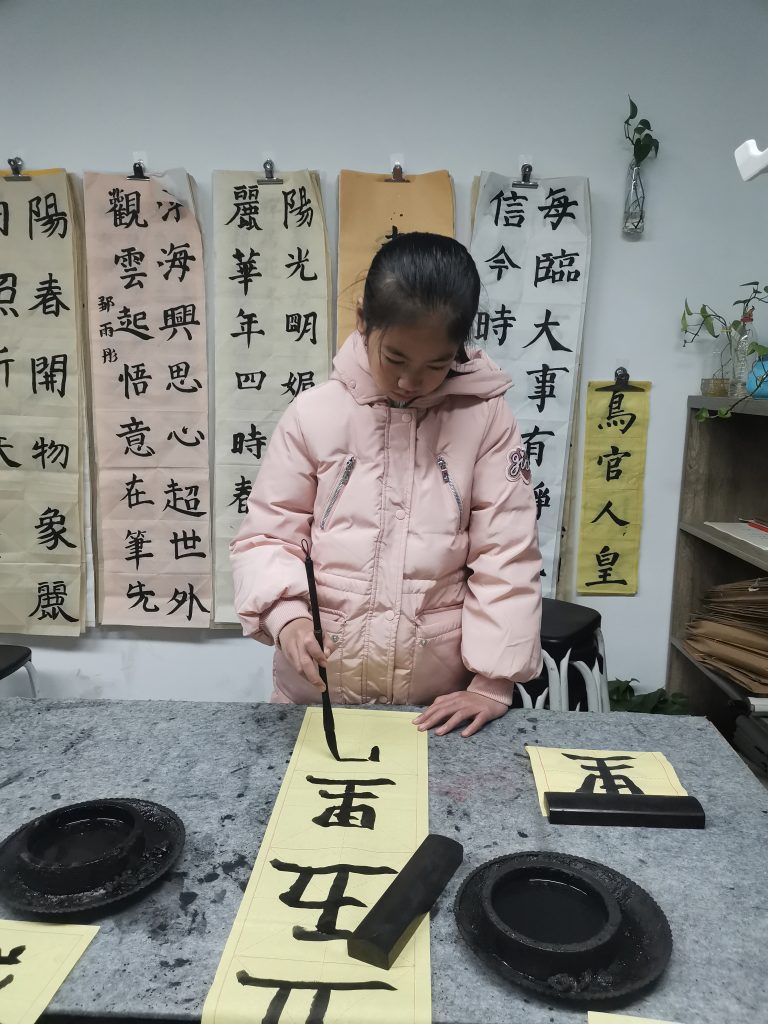 陽春開物象麗
照
海興思心超世外
觀雲起悟意在筆先
鄒雨彤
陽光明媚
麗華年四時春
每臨大事有靜
信今時
鳥官人皇